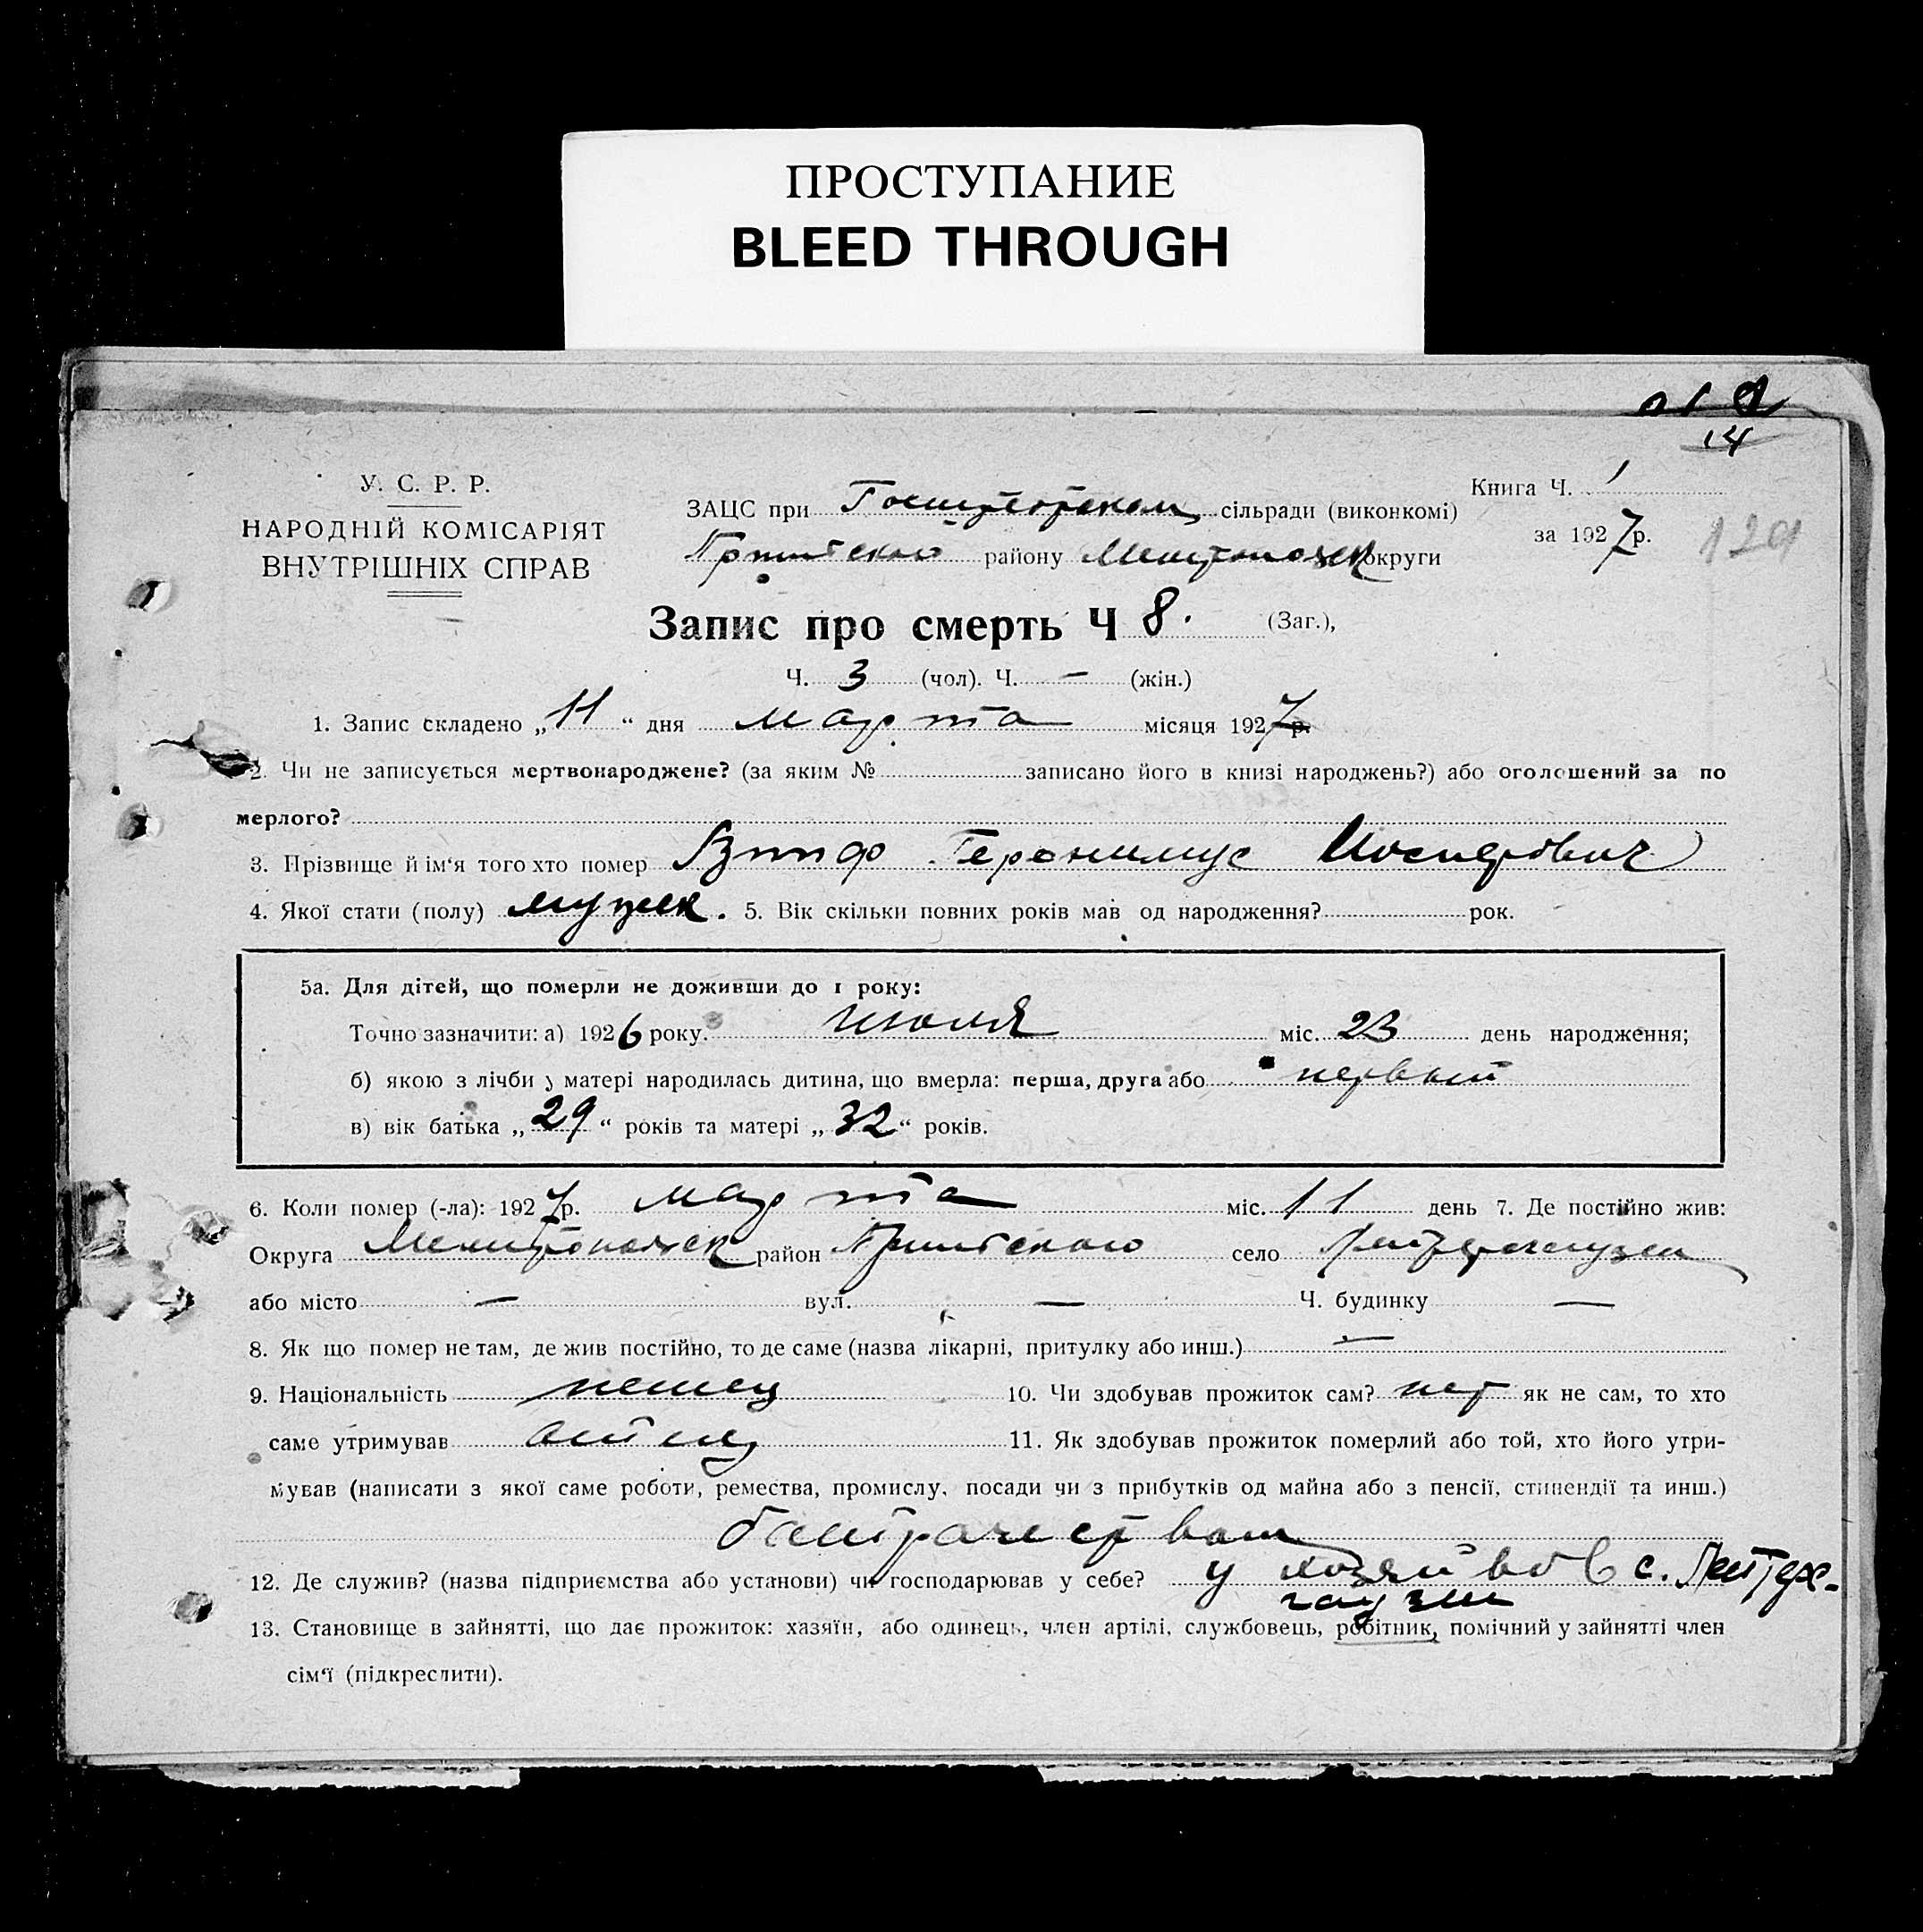 ПРОСТУПАНИЕ
BLEED THROUGH
14
У. С. Р. Р.
НАРОДНІЙ КОМІСАРІЯТ
ВНУТРІШНІХ СПРАВ
ЗАЦС при сільради (виконкомі)
району округи
Книга Ч. 1
за 1927 р.
129
Запис про смерть Ч 8. (Заг.),
Ч. 3 (чол). Ч. — (жін.)
1. Запис складено „11“ дня марта місяця 1927 р.
2. Чи не записується мертвонароджене? (за яким № записано його в книзі народжень?) або оголошений за по
мерлого?
3. Прізвище й ім‘я того хто помер Геронимус Иосифович
4. Якої стати (полу) мужск. 5. Вік скільки повних років мав од народження? рок.
5а. Для дітей, що померли не доживши до 1 року:
Точно зазначити: а) 1926 року. июля міс. 23 день народження;
б) якою з лічби у матері народилась дитина, що вмерла: перша, друга або первый
в) вік батька „29“ років та матері „32“ років.
6. Коли помер (-ла): 1927 р. марта міс. 11 день 7. Де постійно жив:
Округа Мелитопольск район Пришибского село
або місто — вул. — Ч. будинку —
8. Як що помер не там, де жив постійно, то де саме (назва лікарні, притулку або инш.) —
9. Національність немец 10. Чи здобував прожиток сам? нет як не сам, то хто
саме утримував отец 11. Як здобував прожиток померлий або той, хто його утри-
мував (написати з якої саме роботи, ремества, промислу, посади чи з прибутків од майна або з пенсії, стипендії та инш.)
батрачеством
12. Де служив? (назва підприємства або установи) чи господарював у себе? у в с.
13. Становище в зайнятті, що дає прожиток: хазяїн, або одинець, член артілі, службовець, робітник, помічний у зайнятті член
сім‘ї (підкреслити).